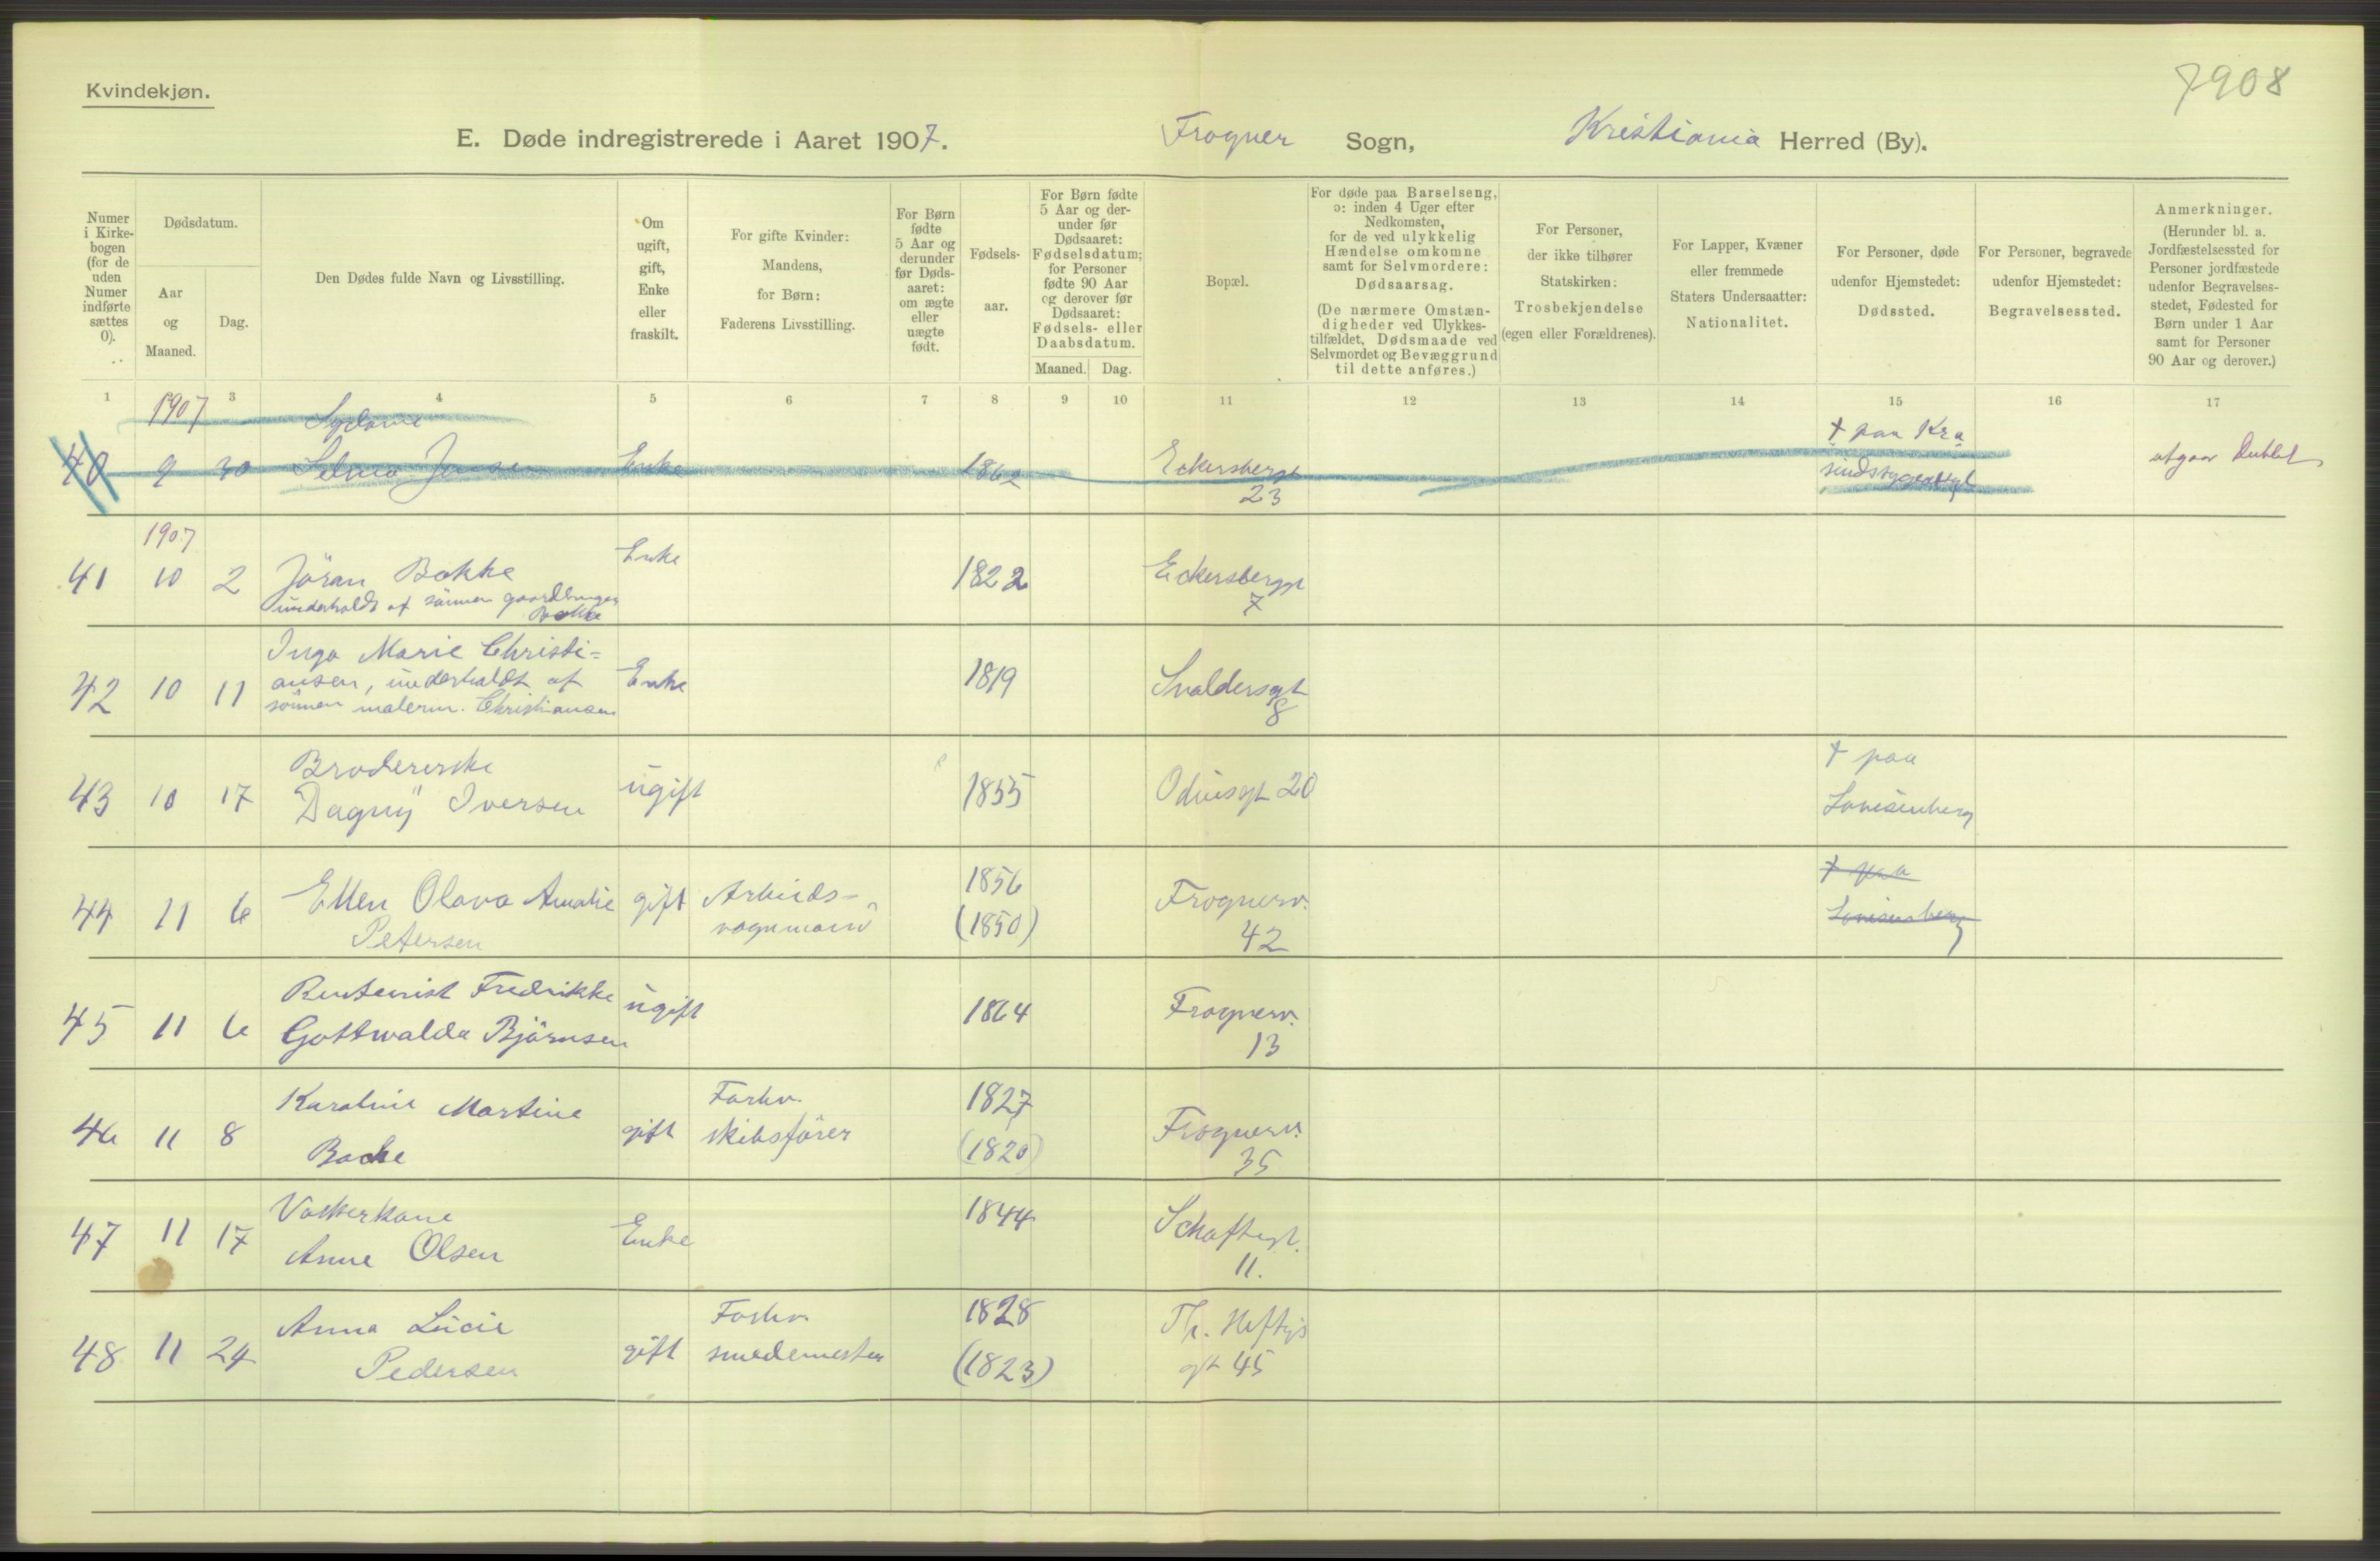 7908
Kvindekjøn.
E. Døde indregistrerede i Aaret 1907. Frogner Sogn, Kristiania Herred (By).
Numer i Kirkebogen (for de uden Numer indførte sættes 0).
Dødsdatum.
Aar og Maaned.
Dag.
Den Dødes fulde Navn og Livsstilling.
Om ugift, gift, Enke eller fraskilt.
For gifte Kvinder: Mandens, for Børn: Faderens Livsstilling.
For Børn fødte 5 Aar og derunder før Dødsaaret: om ægte eller uægte født.
Fødselsaar.
For Børn fødte 5 Aar og derunder før Dødsaaret: Fødselsdatum; for Personer fødte 90 Aar og derover før Dødsaaret: Fødsels- eller Daabsdatum.
Maaned. Dag.
Bopæl.
For døde paa Barselseng, ɔ: inden 4 Uger efter Nedkomsten, for de ved ulykkelig Hændelse omkomne samt for Selvmordere: Dødsaarsag.
(De nærmere Omstændigheder ved Ulykkestilfældet, Dødsmaade ved Selvmordet og Bevæggrund til dette anføres.)
For Personer, der ikke tilhører Statskirken: Trosbekjendelse (egen eller Forældrenes).
For Lapper, Kvæner eller fremmede Staters Undersaatter: Nationalitet.
For Personer, døde udenfor Hjemstedet: Dødssted.
For Personer, begravede udenfor Hjemstedet: Begravelsessted.
Anmerkninger. (Herunder bl. a. Jordfæstelsessted for Personer jordfæstede udenfor Begravelsesstedet, Fødested for Børn under 1 Aar samt for Personer 90 Aar og derover.)
1 3 4 5 6 7 8 9 10 11 12 13 14 15 16 17
1907
† paa Kra
40 9 30 Selma Jensen Enke 1862 Eckersbergt sindssygeasyl utgaar Dublet
23
1907
41 10 2 Jöran Bakke Enke 1822 Eckersbergt
underholdt af sönnen gaardbruger
Bakke
7
Inga Marie Christi=
42 10 11 ansen, underholdt af Enke 1819 Snaldersgt
sönnen malerm. Christiansen
8
Brodererske † paa
43 10 17 Dagny Iversen ugift 1855 Odinsgt 20 Lovisenberg
44 11 6 Ellen Olava Amalie gift Arbeids- 1856 Frognerv. † paa
Petersen vognmand (1850) 42 Lovisenberg
Rentenist Fredrikke
45 11 6 Gottwalda Björnsen ugift 1864 Frognerv.
13
Karoline Martine Forhv. 1827
46 11 8 Backe gift skibsförer (1820) Frognerv.
35
Vaskerkone
47 11 17 Anne Olsen Enke 1844 Schaftegt.
11.
Anna Lucie Forhv. 1828 Th. Heftyes
48 11 24 Pedersen gift smedemester (1823) gt 45